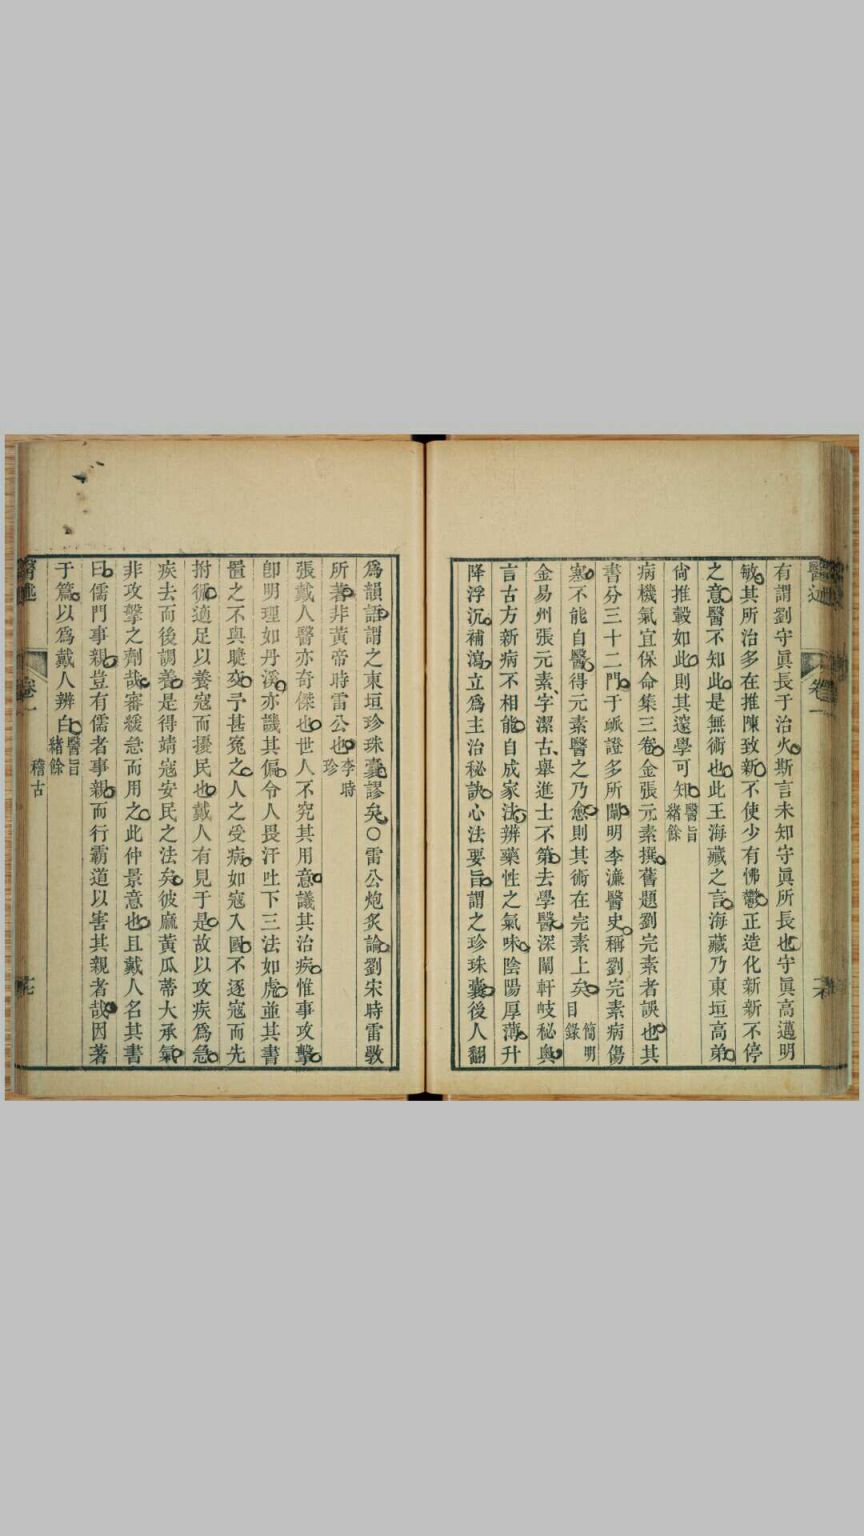 醫述
卷一
有謂劉守眞長于治火斯言未知守眞所長也守眞高邁明
敏其所治多在推陳致新不使少有怫鬱正造化新新不停
之意醫不知此是無術也此王海藏之言海藏乃東垣高弟
尙推轂如此則其邃學可知醫旨緒餘
病機氣宜保命集三卷金張元素撰舊題劉完素者誤也其
書分三十二門于𧖴證多所闡明李濂醫史稱劉完素病傷
寒不能自醫得元素醫之乃愈則其術在完素上矣簡明目錄
金易州張元素字潔古舉進士不第去學醫深闡軒岐秘奧
言古方新病不相能自成家法辨藥性之氣味陰陽厚薄升
降浮沉補瀉立爲主治秘訣心法要旨謂之珍珠囊後人翻
爲韻語謂之東垣珍珠囊謬矣○雷公炮炙論劉宋時雷斆
所著非黃帝時雷公也李時珍
張戴人醫亦奇傑也世人不究其用意議其治疾惟事攻擊
卽明理如丹溪亦譏其偏令人畏汗吐下三法如虎並其書
置之不與睫交予甚寃之人之受病如寇入國不逐寇而先
拊循適足以養寇而擾民也戴人有見于是故以攻疾爲急
疾去而後調養是得靖寇安民之法矣彼麻黃瓜蒂大承氣
非攻擊之劑哉審緩急而用之此仲景意也且戴人名其書
曰儒門事親豈有儒者事親而行霸道以害其親者哉因著
于篇以爲戴人辨白醫旨緒餘
稽古
卷一